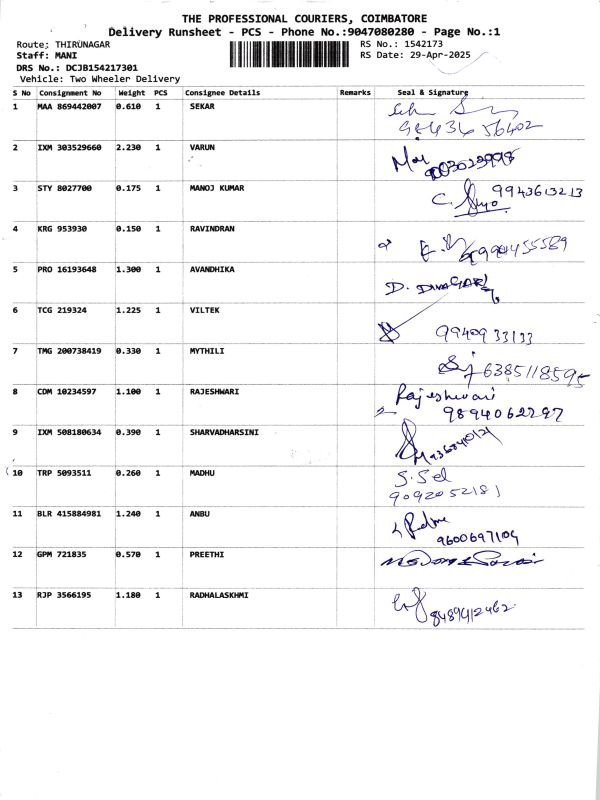 THE PROFESSIONAL COURIERS, COIMBATORE
Delivery Runsheet - PCS - Phone No.:9047080280 - Page No.:1
Route; THIRUNAGAR RS No.: 1542173
Staff: MANI RS Date: 29-Apr-2025
DRS No.: DCJB154217301
Vehicle: Two Wheeler Delivery
S No Consignment No Weight PCS Consignee Details Remarks Seal & Signature
1 MAA 869442007 0.610 1 SEKAR
2 IXM 303529660 2.230 1 VARUN
3 STY 8027700 0.175 1 MANOJ KUMAR 9943613213
4 KRG 953930 0.150 1 RAVINDRAN
5 PRO 16193648 1.300 1 AVANDHIKA D.
6 TCG 219324 1.225 1 VILTEK 9940933133
7 TMG 200738419 0.330 1 MYTHILI 6385118595
8 CDM 10234597 1.100 1 RAJESHWARI Rajeshwari
9894062297
9 IXM 508180634 0.390 1 SHARVADHARSINI
10 TRP 5093511 0.260 1 MADHU S. Sel
9092052181
11 BLR 415884981 1.240 1 ANBU
9600697104
12 GPM 721835 0.570 1 PREETHI
13 RJP 3566195 1.180 1 RADHALASKHMI
8489412462